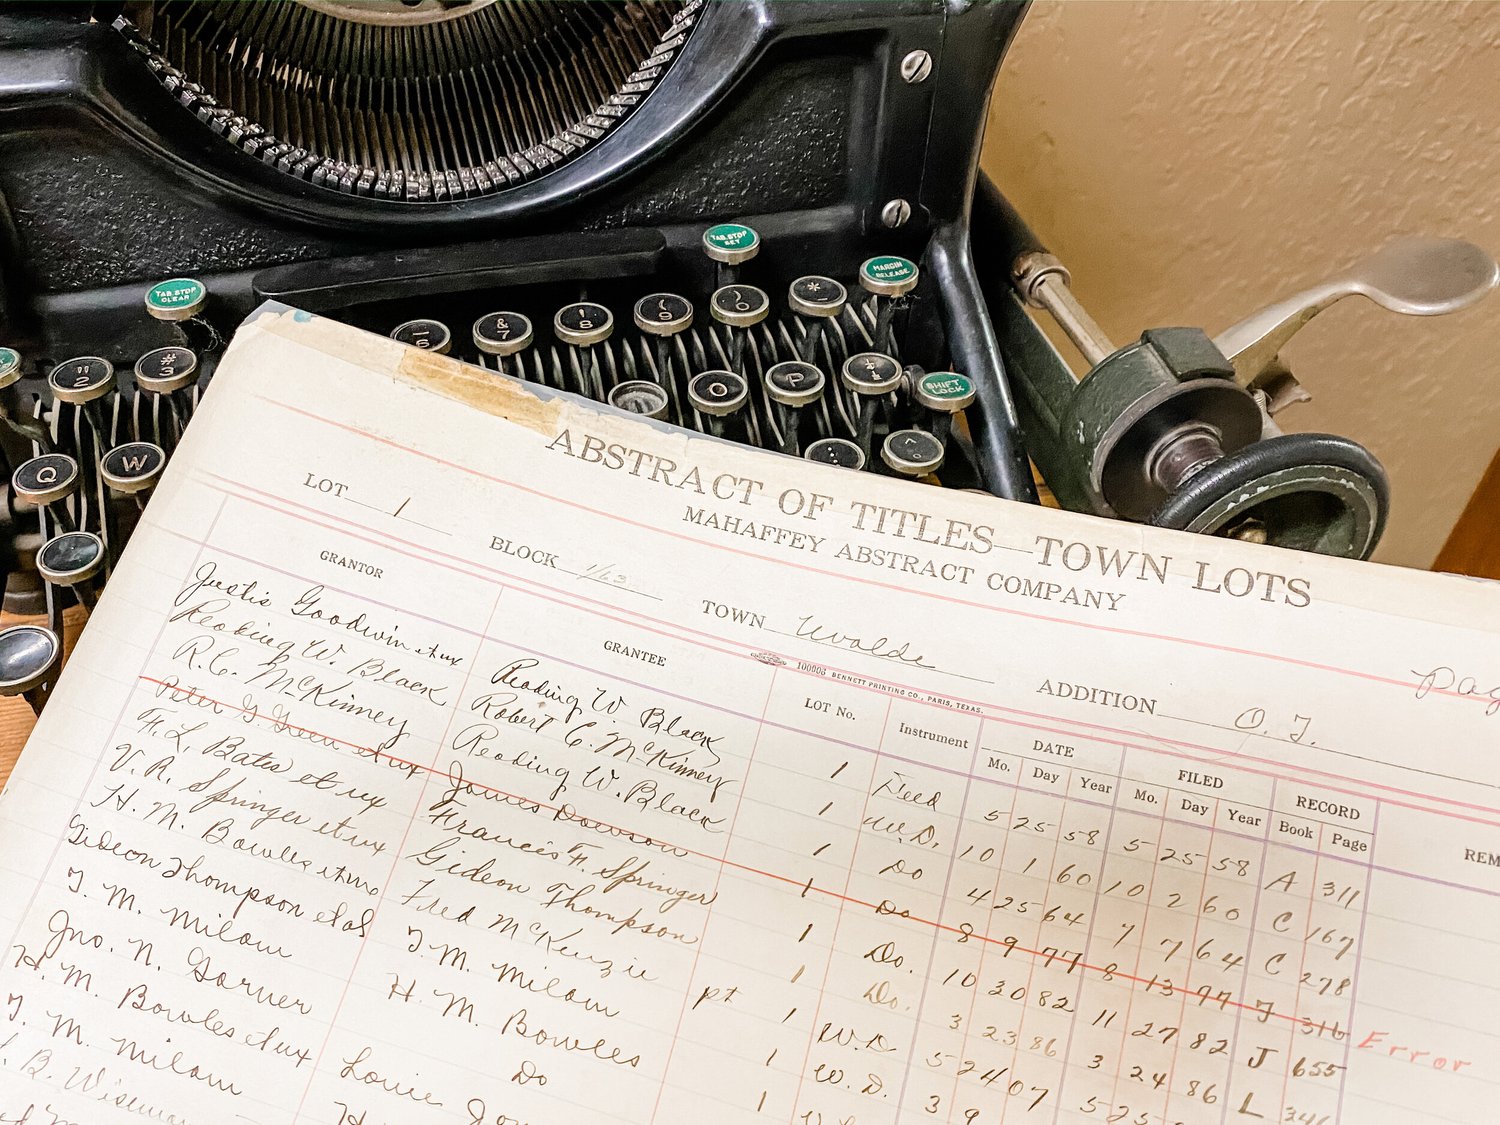 TAB STOP SET
MARGIN RELEASE
TAB STOP CLEAR
" 2
# 3
— 6
& 7
' 8
( 9
) 0
* -
Q W
O P
SHIFT LOCK
ABSTRACT OF TITLES—TOWN LOTS
MAHAFFEY ABSTRACT COMPANY
LOT 1 BLOCK 1/63 TOWN Uvalde ADDITION O.T. Pag
10000s BENNETT PRINTING CO., PARIS, TEXAS.
GRANTOR GRANTEE LOT No. Instrument DATE FILED RECORD REM
Mo. Day Year Mo. Day Year Book Page
Justis Goodwin et ux Reading W. Black 1 Deed 5 25 58 5 25 58 A 311
Reading W. Black Robert C. McKinney 1 W.D. 10 1 60 10 2 60 C 167
R. C. McKinney Reading W. Black 1 Do 4 25 64 7 7 64 C 278
Peter G. Green et ux James Dawson 1 Do 8 9 77 8 13 77 J 316 Error
F. L. Bates et ux Francis F. Springer 1 Do. 10 30 82 11 27 82 J 655
V. R. Springer et ux Gideon Thompson 1 Do. 3 23 86 3 24 86 L
H. M. Bowles et ux Fred McKenzie pt 1 W.D 5 24 07 5 25
Gideon Thompson et als T. M. Milam 1 W.D. 3 9
T. M. Milam H. M. Bowles 1
Jno. N. Garner Do
H. M. Bowles et ux Louie
T. M. Milam H
B. Wiseman